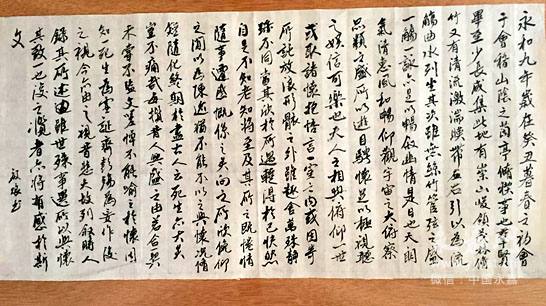 永和九年歲在癸丑暮春之初會
于會稽山陰之蘭亭脩稧事也羣賢
畢至少長咸集此地有崇山峻領茂林脩
竹又有清流激湍暎帶左右引以為流
觴曲水列坐其次雖無絲竹管弦之盛
一觴一詠亦足以暢叙幽情是日也天朗
氣清惠風和暢仰觀宇宙之大俯察
品類之盛所以遊目騁懷足以極視聽
之娛信可樂也夫人之相與俯仰一世
或取諸懷抱悟言一室之內或因寄
所託放浪形骸之外雖趣舍萬殊靜
躁不同當其欣於所遇蹔得於己快然
自足不知老之將至及其所之既惓情
隨事遷感慨係之矣向之所欣俛仰
之間以為陳迹猶不能不以之興懷況脩
短隨化終期於盡古人云死生亦大矣
豈不痛哉每攬昔人興感之由若合一契
未嘗不臨文嗟悼不能喻之於懷固
知一死生為虛誕齊彭殤為妄作後
之視今亦由今之視昔悲夫故列叙時人
錄其所述雖世殊事異所以興懷
其致一也後之攬者亦將有感於斯
文
微信：中国永嘉